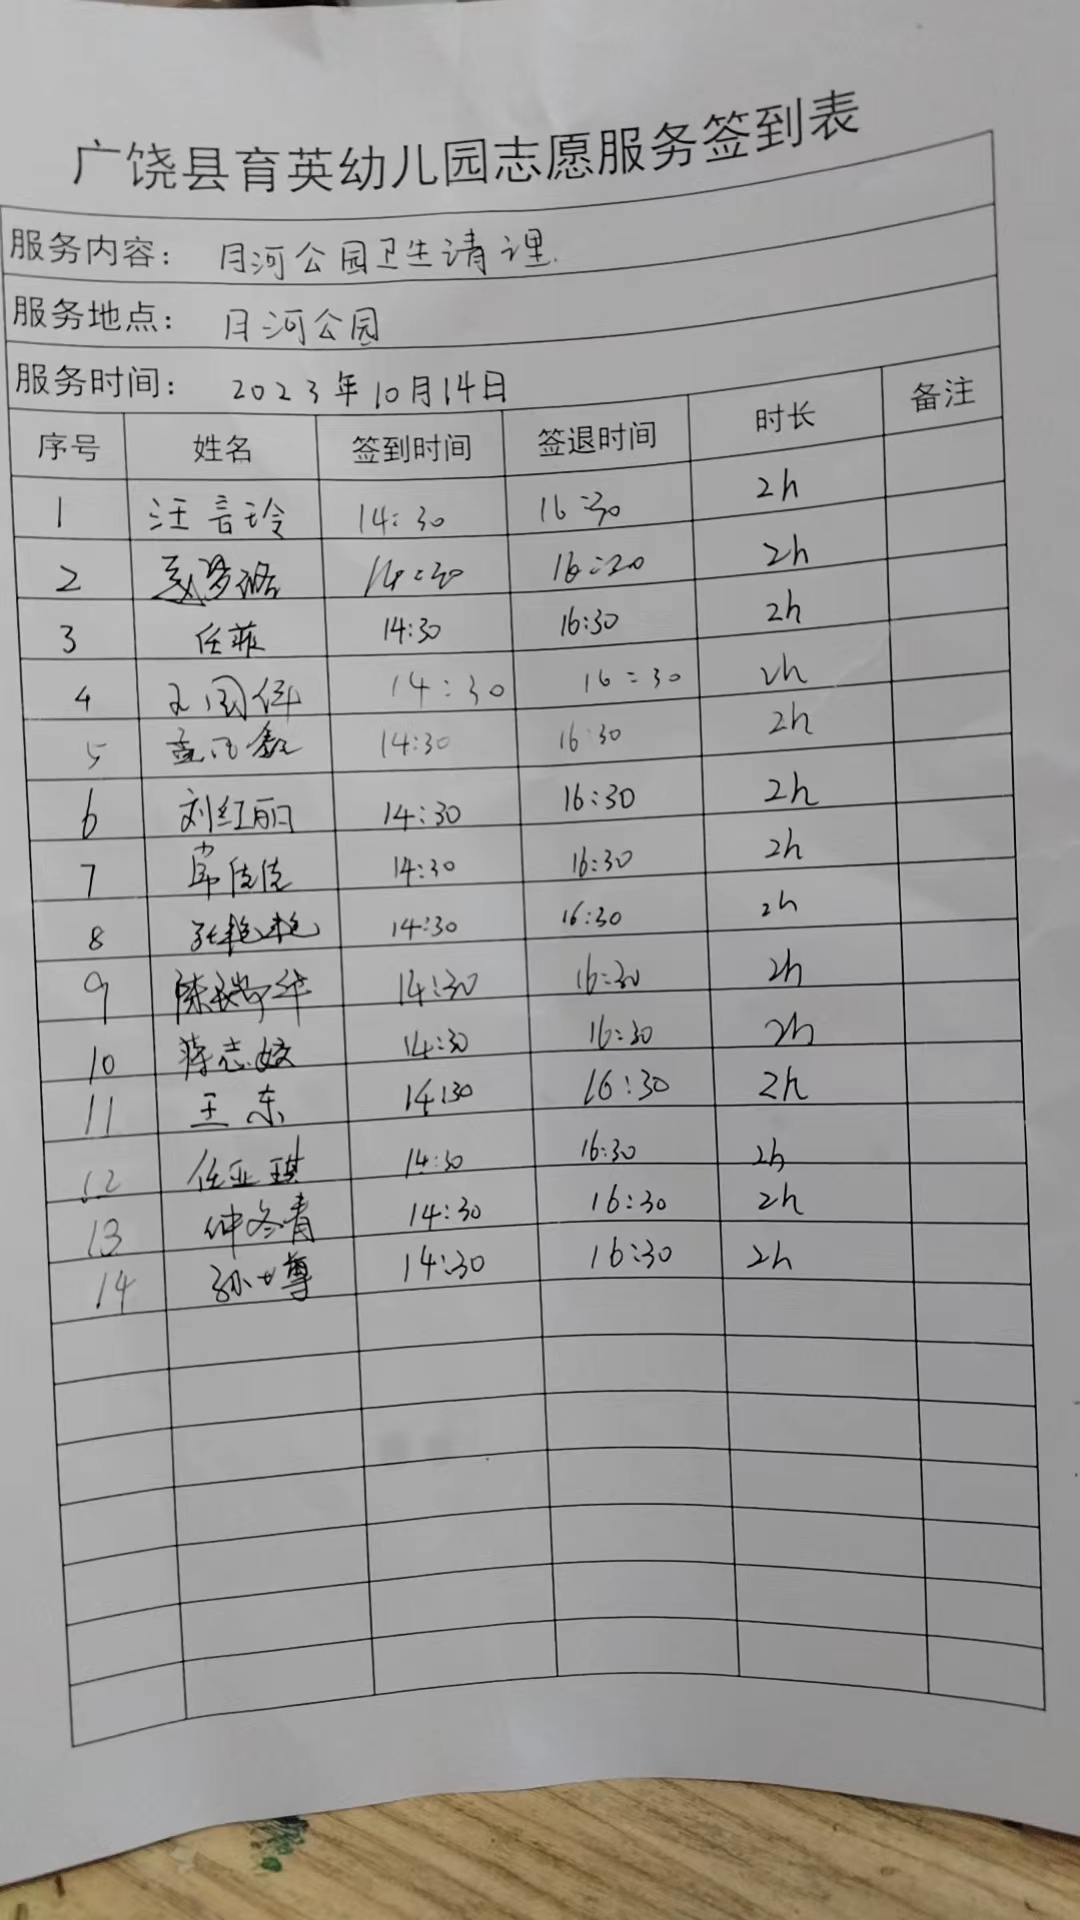 广饶县育英幼儿园志愿服务签到表
服务内容: 月河公园卫生清理
服务地点: 月河公园
服务时间: 2023年10月14日
序号 姓名 签到时间 签退时间 时长 备注
1 汪言玲 14:30 16:30 2h
2 14:30 16:30 2h
3 任菲 14:30 16:30 2h
4 14:30 16:30 2h
5 14:30 16:30 2h
6 刘红丽 14:30 16:30 2h
7 常佳佳 14:30 16:30 2h
8 张艳艳 14:30 16:30 2h
9 陈瑞华 14:30 16:30 2h
10 蒋志姣 14:30 16:30 2h
11 王东 14:30 16:30 2h
12 任亚琪 14:30 16:30 2h
13 仲冬青 14:30 16:30 2h
14 孙世尊 14:30 16:30 2h